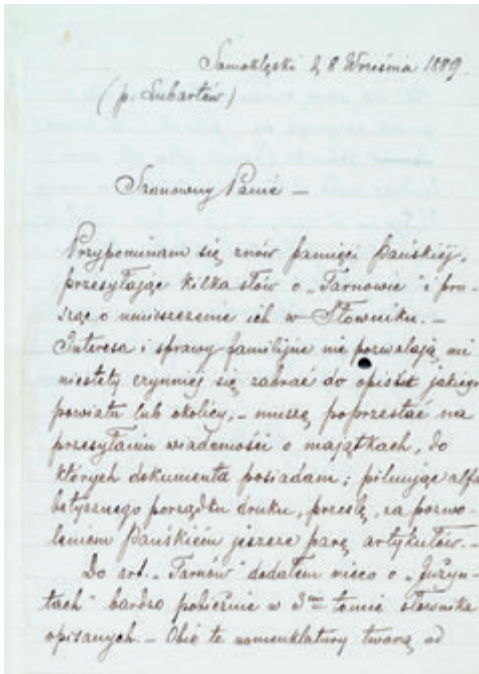 Samoklęski d. 8 Września 1889.
(p. Lubartów)
Szanowny Panie —
Przypominam się znów pamięci Pańskiéj,
przesyłając kilka słów o „Tarnowie" i pro-
sząc o umieszczenie ich w Słowniku. —
Interesa i sprawy familijne nie pozwalają mi
niestety czynniej się zabrać do opisu jakiego
powiatu lub okolicy, — muszę poprzestać na
przesyłaniu wiadomości o majątkach, do
których dokumenta posiadam; pilnując alfa
betycznego porządku druku, prześlę, za pozwo-
leniem Pańskiém jeszcze parę artykułów. —
Do art. „Tarnów" dodałem nieco o „Jużyn-
tach" bardzo pobieżnie w 3m tomie słownika
opisanych — Obie te nomenklatury tworzą od